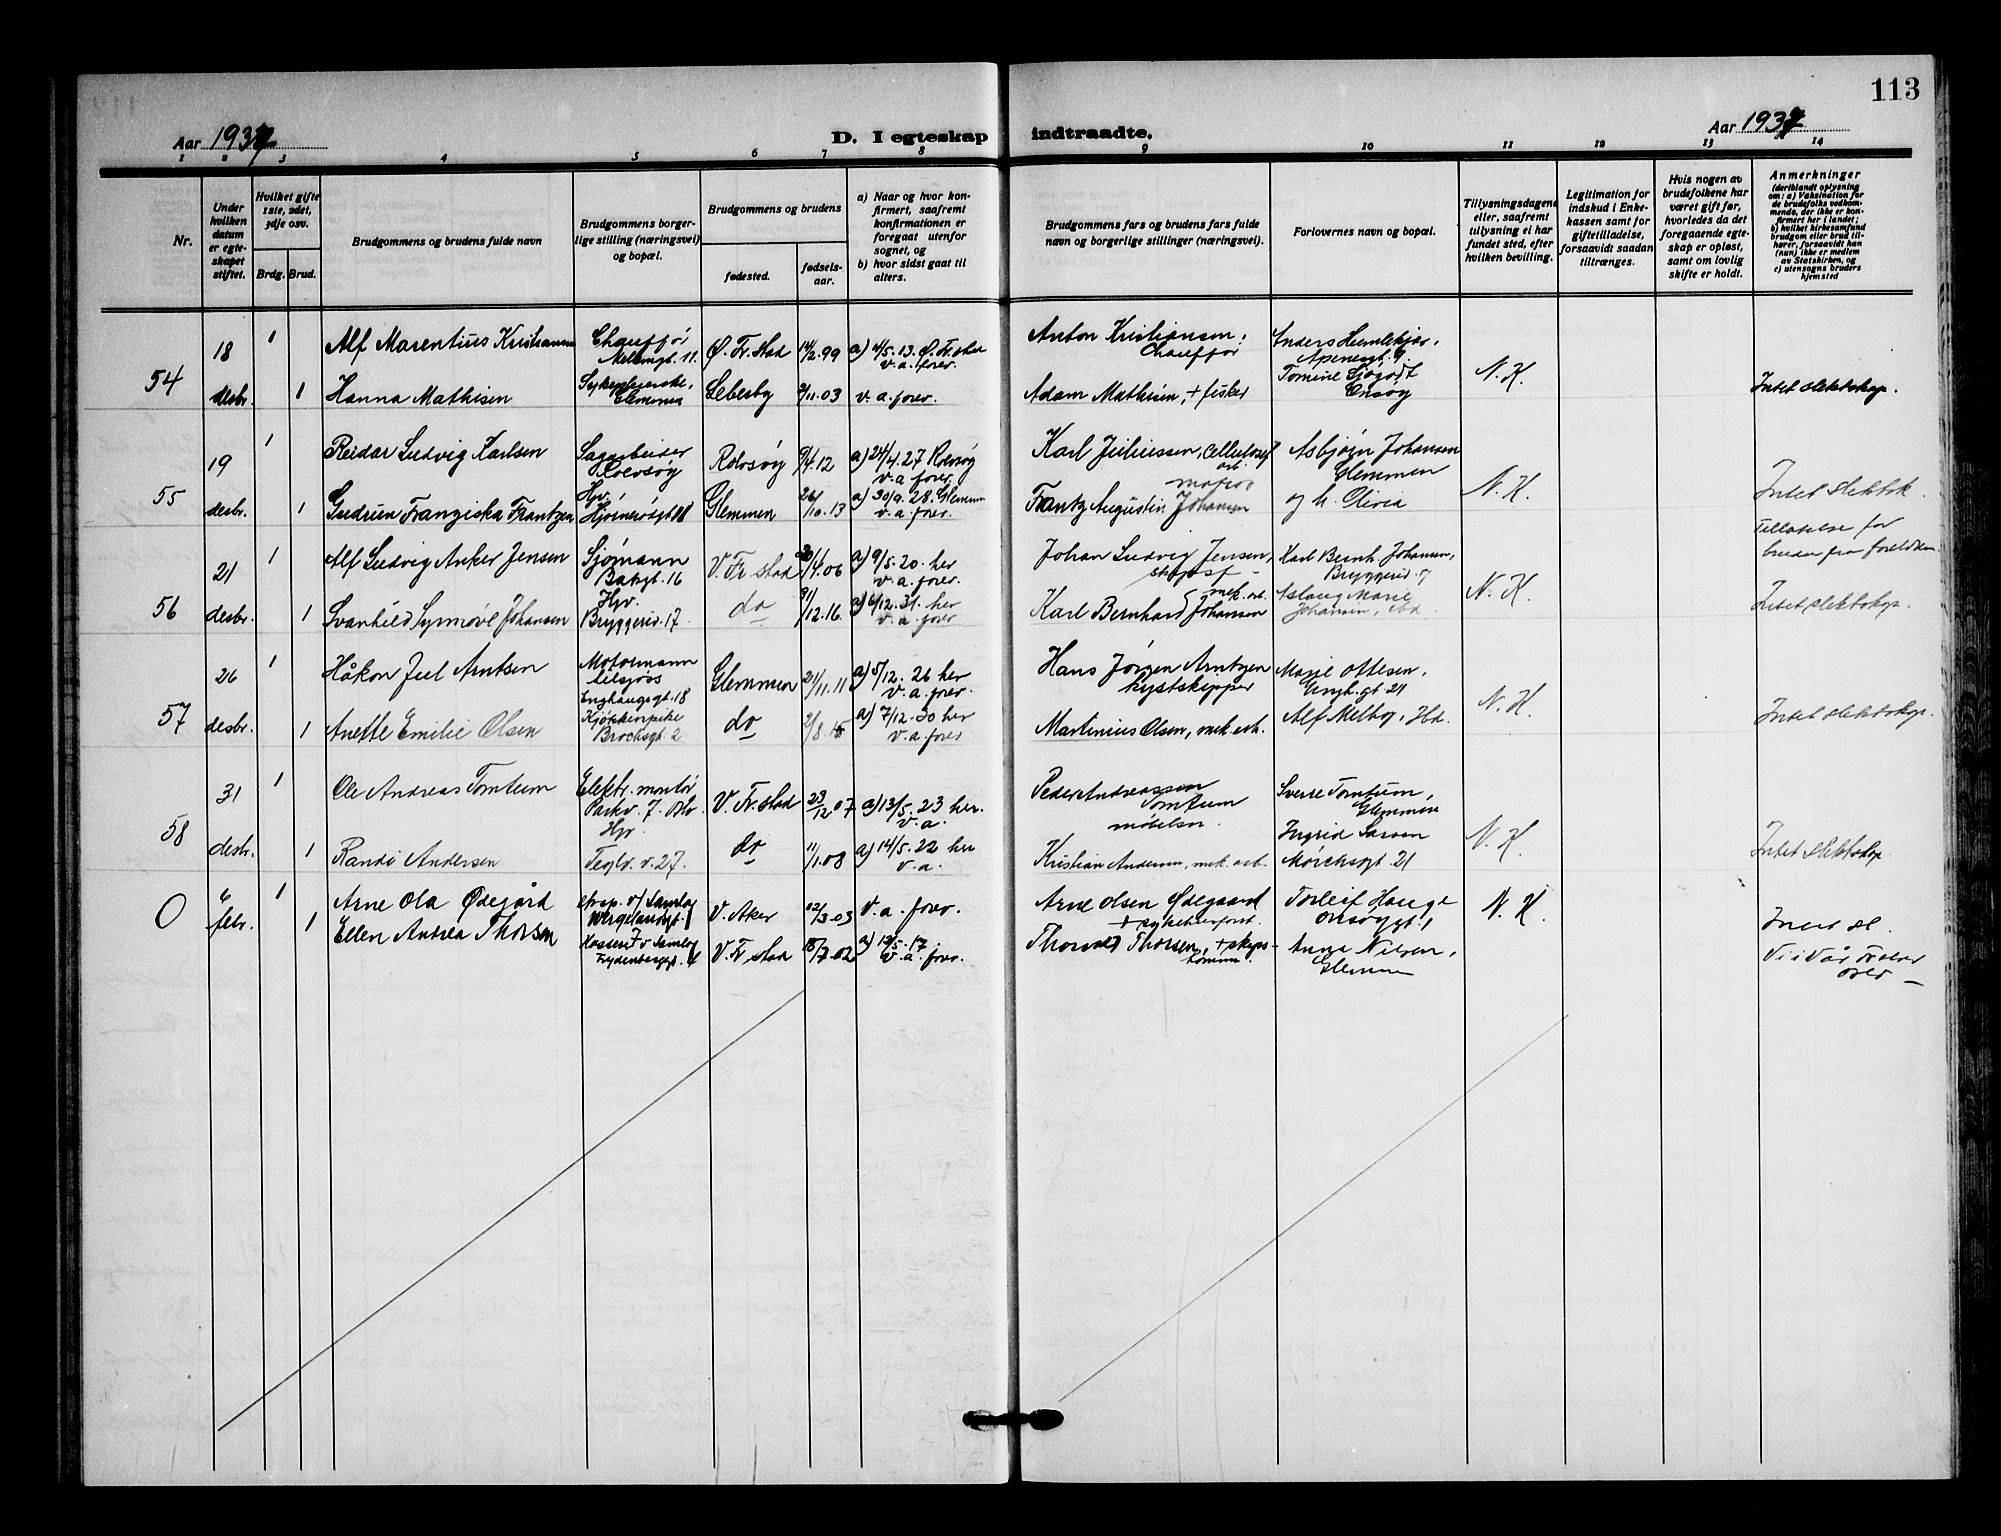 113
Aar 1937
D. I egteskap indtraadte.
Aar 1937
1 2 3 4 5 6 7 8 9 10 11 12 13 14
Nr.
Under hvilken datum er egteskapet stiftet.
Hvilket gifte 1ste, 2det, 3dje osv.
Brdg. Brud.
Brudgommens og brudens fulde navn
Brudgommens borgerlige stilling (næringsvei) og bopæl.
Brudgommens og brudens
fødested.
fødselsaar.
a) Naar og hvor konfirmert, saafremt konfirmationen er foregaat utenfor sognet, og
b) hvor sidst gaat til alters.
Brudgommens fars og brudens fars fulde navn og borgerlige stillinger (næringsvei).
Forlovernes navn og bopæl.
Tillysningsdagene eller, saafremt tillysning ei har fundet sted, efter hvilken bevilling.
Legitimation for indskud i Enkekassen samt for giftetilladelse, forsaavidt saadan tiltrænges.
Hvis nogen av brudefolkene har været gift før, hvorledes da det foregaaende egteskap er opløst, samt om lovlig skifte er holdt.
Anmerkninger
(deriblandt oplysning om: a) Vaksination for de brudefolks vedkommende, der ikke er konfirmert her i landet; b) hvilket kirkesamfund brudgom eller brud tilhører, forsaavidt han (hun) ikke er medlem av Statskirken, og c) utensogns bruders hjemsted
54
18 desbr.
1 Alf Marentius Kristiansen Chauffør 11. Ø. Fr.stad 14/2.99 a) 4/5.13. Ø. Fr.stad v.a. forev. Anton Kristiansen, Chauffør Anders Humlekjær, Apenesgt. 9. N.K.
1 Hanna Mathisen Sykepleierske, Glemmen Lebesby 2/11.03 v.a. forev. Adam Mathisen, + fisker Tomine Sjøgodt Onsøy Intet slektskap.
55
19 desbr.
1 Reidar Ludvig Karlsen Sagarbeider Rolvsøy Rolvsøy 9/4.12 a) 24/4.27 Rolvsøy v.a. forev. Karl Juliussen, Cellulosef arb. Asbjørn Johansen Glemmen N.K.
1 Gudrun Franziska Frantzen Hjv. Glemmen 26/10.13 a) 30/9.28 Glemmen v.a. forev. Frantz Augustin Johansen og h. Olivia Intet slektsk.
Tillatelse for bruden fra foreldrene
56
21 desbr.
1 Alf Ludvig Anker Jensen Sjømann Bakgt. 16 V. Fr.stad 20/4.06 a) 9/5.20. her v.a. forev. Johan Ludvig Jensen, Karl Bernh. Johansen, Bryggeriv. 17 N.K.
1 Svanhild Synnøve Johansen Hjv. Bryggeriv. 17 do 31/12.16. a) 6/12.31. her v.a. forev. Karl Bernhard Johansen mek. arb. Aslaug Marie Johansen, ibd. Intet slektskap.
57
26 desbr.
1 Håkon Juel Arntsen Motormann Enghaugsgt. 18 Glemmen 21/11.11 a) 5/12.26 her v.a. forev. Hans Jørgen Arntzen kystskipper Marie Ottesen, Engh.gt 21 N.K.
1 Anette Emilie Olsen Kjøkkenpike Brochsgt 2 do 2/8.15 a) 7/12.30 her v.a. forev Martinius Olsen, mek. arb. Alf Melby, Ibd. Intet slektskap.
58
31 desbr.
1 Ole Andreas Tomtum Elektr. montør Parkv. 7. Oslo V. Fr.stad 23/12 07 a) 13/5.23 her. v.a. Peder Andreassen Tomtum møbelsn. Sverre Tomtum, Glemmen N.K.
1 Randi Andersen Hjv. Teglv. v. 27. do 11/1.08 a) 14/5.22 her v.a. Kristian Andersen, mek. arb. Ingrid Larsen Mørchsgt 21 Intet slektskap.
0
6 febr.
1 Arne Ola Ødegård Wergelandsgt. V. Aker 12/3.03 v.a. forev. Arne Olsen Ødegaard Torleif Hauge Onsøygt 1 N.K.
1 Ellen Antrea Thorsen V. Fr.stad 18/7.02 a) 13/5.17. v.a. forev. Thorvald Thorsen, + Anna Nilsen, Glemmen